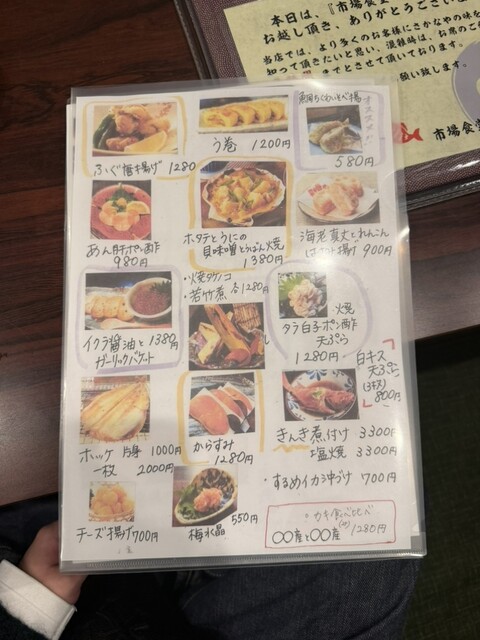 本日は、『市場食堂
お越し頂き、ありがとうござい
当店では、より多くのお客様にさかなやの味を
知って頂きたいと思い、混雑時は、お席のご
までとさせて頂いております。
願い致します。
市場食堂
ふぐ唐揚げ 1280
う巻 1200円
オススメ
580円
あん肝ポン酢
980円
ホタテとうにの
貝味噌とうばん焼
1380円
海老真丈とれんこん
はさみ揚げ 900円
・焼タケノコ
・若竹煮 各1280円
イクラ醤油と 1380円
ガーリックバゲット
焼
タラ白子ポン酢
天ぷら
1280円
白キス
天ぷら
(3キス)
800円
ホッケ 片身 1000円
一枚 2000円
からすみ
1280円
きんき煮付け 3300円
塩焼 3300円
・するめイカ沖づけ 700円
チーズ揚げ 700円
梅水晶
550円
・カキ食べくらべ
〇〇産と〇〇産 1280円